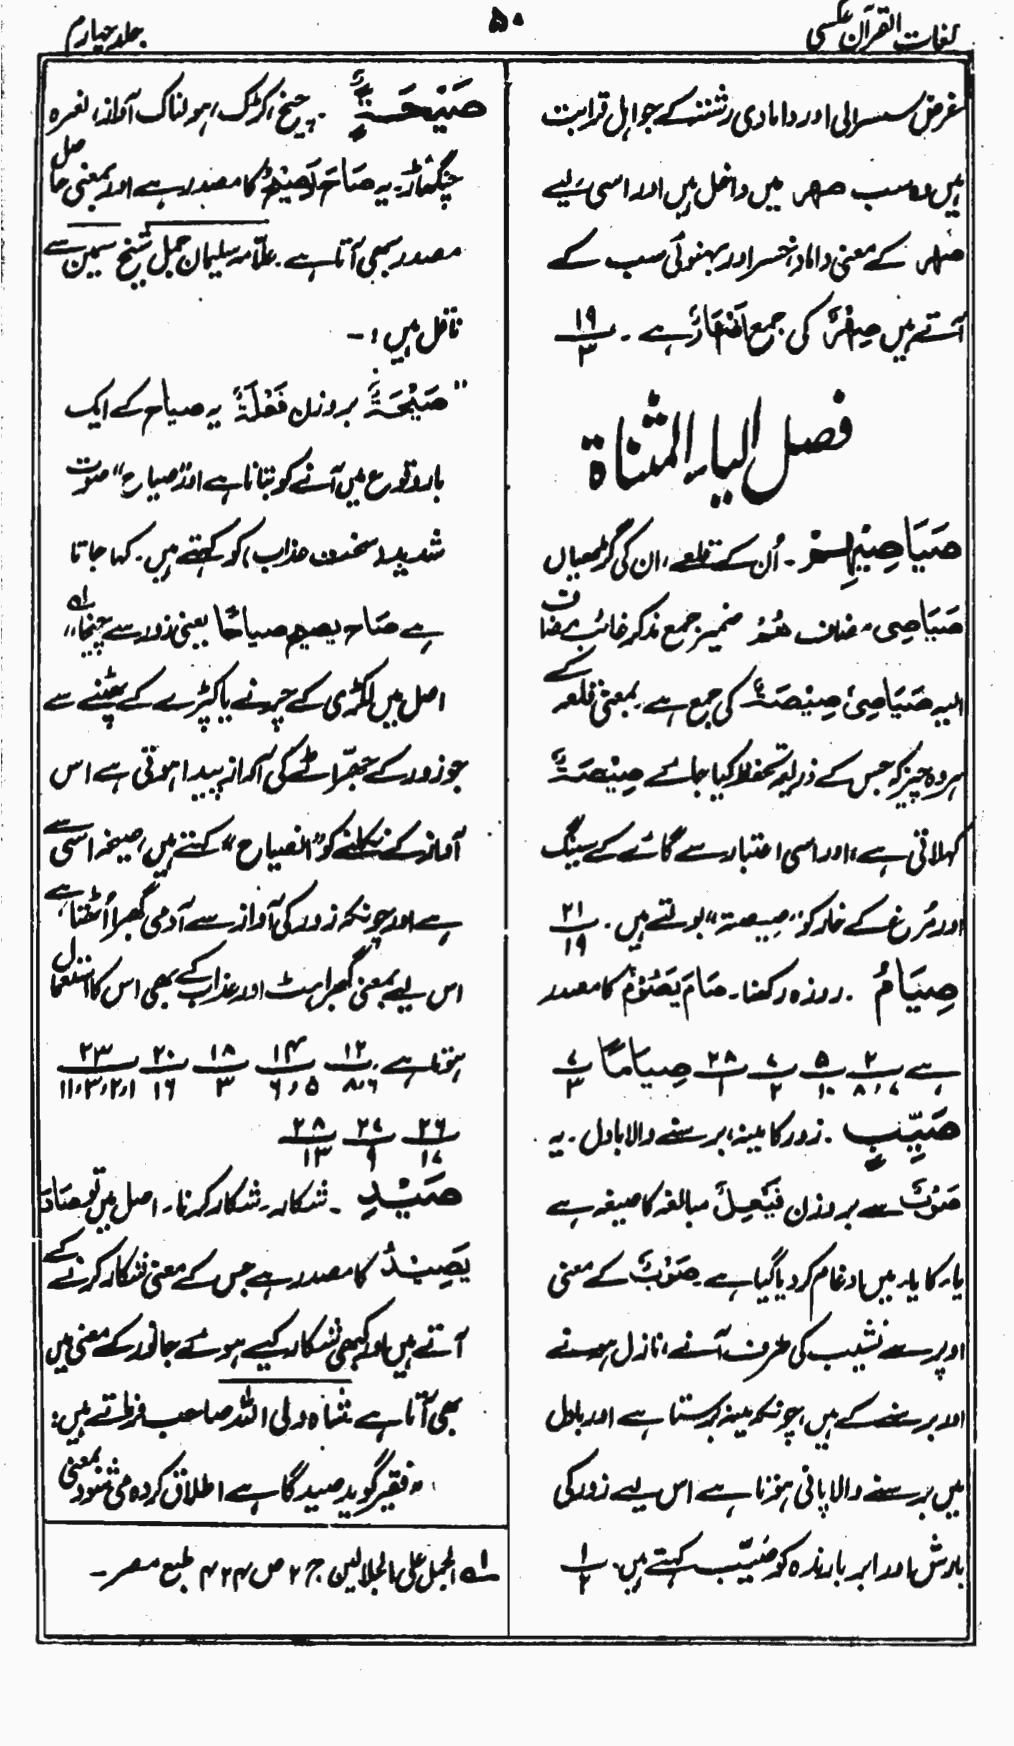 لغات القرآن عکسی
۵۰
جلد چہارم
غرض سسرالی اور دامادی رشتہ کے جو اہل قرابت
ہیں وہ سب صہر میں داخل ہیں اور اسی لیے
صہر کے معنی داماد، خسر اور بہنوئی سب کے
آتے ہیں صِہْرٌ کی جمع اَصْہَارٌ ہے ۔ ۱۹/۳
فصل الیاء المثناة
صَيَاصِيْهِمْ ۔ اُن کے قلعے، ان کی گڑھیاں
صَيَاصِی مضاف هُمْ ضمیر جمع مذکر غائب مضاف
الیہ صَيَاصِیْ صِيْصَةٌ کی جمع ہے بمعنی قلعہ کے
ہر وہ چیز کہ جس کے ذریعہ تحفظ کیا جائے صِيْصَةٌ
کہلاتی ہے، اور اسی اعتبار سے گائے کے سینگ
اور مُرغ کے خار کو "صیصة" بولتے ہیں ۔ ۲۱/۱۹
صِيَامُ ۔ روزہ رکھنا ۔ صَامَ يَصُوْمُ کا مصدر
ہے ۲/۷، ۸ ۵/۱۰ ۷/۲ ۲۸/۱ صِيَامًا ۷/۳
صَيِّبٍ ۔ زور کا مینہ، برسنے والا بادل ۔ یہ
صَوْبٌ سے بروزن فَيْعِلٌ مبالغہ کا صیغہ ہے
یاء کا یاء میں ادغام کر دیا گیا ہے ۔ صَوْبٌ کے معنی
اوپر سے نشیب کی طرف آنے، نازل ہونے
اور برسنے کے ہیں، چونکہ مینہ برستا ہے اور بادل
میں برسنے والا پانی ہوتا ہے اس لیے زور کی
بارش اور ابر بارندہ کو صَيِّب کہتے ہیں ۔ ۱/۲
صَيْحَةٌ ۔ چیخ، کڑک، ہولناک آواز، نعرہ
چنگھاڑ ۔ یہ صَاحَ يَصِيْحُ کا مصدر ہے اور بمعنی حاصل
مصدر بھی آتا ہے ۔ علامہ سلیمان جمل شیخ سمین سے
ناقل ہیں :۔
"صَيْحَةٌ بروزن فَعْلَةٌ یہ صیاح کے ایک
بار وقوع میں آنے کو بتاتا ہے اور "صیاح" صوت
شدید (سخت عذاب) کو کہتے ہیں ۔ کہا جاتا
ہے صَاحَ یصیح صیاحًا یعنی زور سے چیخا" ؎۱
اصل میں لکڑی کے چرنے یا کپڑے کے پھٹنے سے
جو زور کے چھراٹے کی آواز پیدا ہوتی ہے اس
آواز کے نکلنے کو "انصیاح" کہتے ہیں، صیحہ اسی سے
ہے اور چونکہ زور کی آواز سے آدمی گھبرا اُٹھتا ہے،
اس لیے بمعنی گھبراہٹ اور عذاب کے بھی اس کا استعمال
ہوتا ہے ۱۲/۶، ۸ ۱۴/۵، ۶ ۱۸/۳ ۲۰/۱۶ ۲۳/۱، ۲، ۳، ۱۱
۲۶/۱۷ ۲۷/۹ ۲۸/۱۳
صَيْدِ ۔ شکار ۔ شکار کرنا ۔ اصل میں تو صَادَ
يَصِيْدُ کا مصدر ہے جس کے معنی شکار کرنے کے
آتے ہیں اور کبھی شکار کیے ہوئے جانور کے معنی میں
بھی آتا ہے شاہ ولی اللہ صاحب فرماتے ہیں :
"فقیر گوید صید گاہے اطلاق کردہ می شود بمعنی
؎۱ الجمل علی الجلالین ج ۲ ص ۴۲۴ طبع مصر ۔